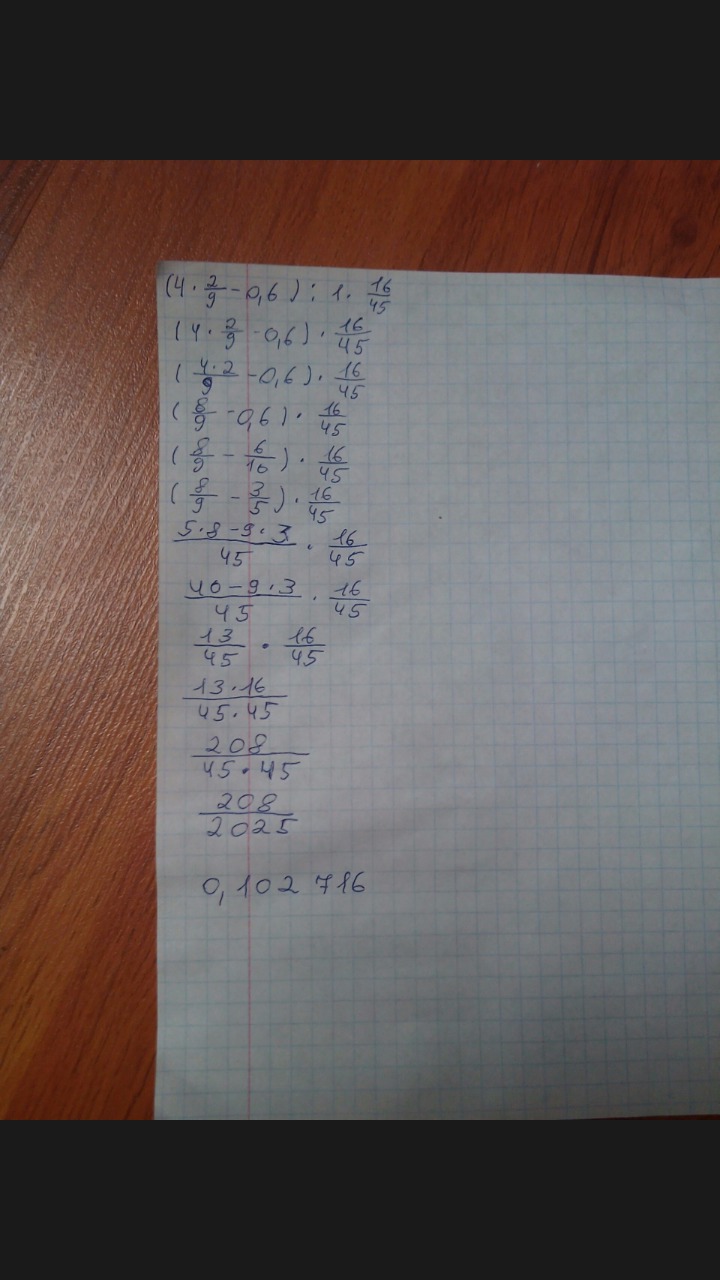 (4 · 2/9 - 0,6) : 1 · 16/45
(4 · 2/9 - 0,6) · 16/45
(4·2/9 - 0,6) · 16/45
(8/9 - 0,6) · 16/45
(8/9 - 6/10) · 16/45
(8/9 - 3/5) · 16/45
5·8-9·3/45 · 16/45
40-9·3/45 · 16/45
13/45 · 16/45
13·16/45·45
208/45·45
208/2025
0,102 716